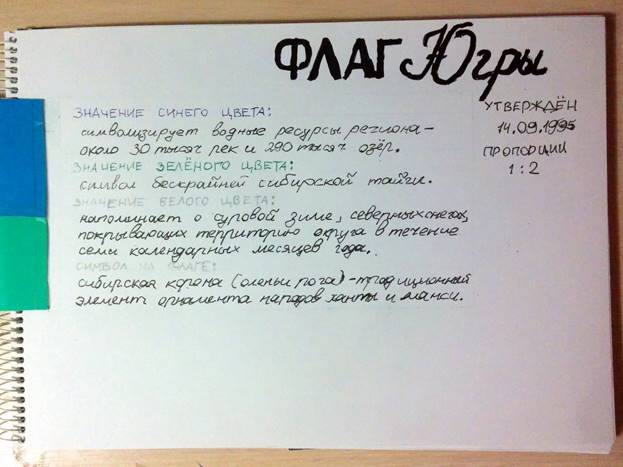 ФЛАГ Югры
УТВЕРЖДЁН
14.09.1995
ПРОПОРЦИИ
1:2
ЗНАЧЕНИЕ СИНЕГО ЦВЕТА:
символизирует водные ресурсы региона –
около 30 тысяч рек и 290 тысяч озёр.
ЗНАЧЕНИЕ ЗЕЛЁНОГО ЦВЕТА:
символ бескрайней сибирской тайги.
ЗНАЧЕНИЕ БЕЛОГО ЦВЕТА:
напоминает о суровой зиме, северных снегах,
покрывающих территорию округа в течение
семи календарных месяцев года.
СИМВОЛ НА ФЛАГЕ:
сибирская корона (оленьи рога) – традиционный
элемент орнамента народов ханты и манси.